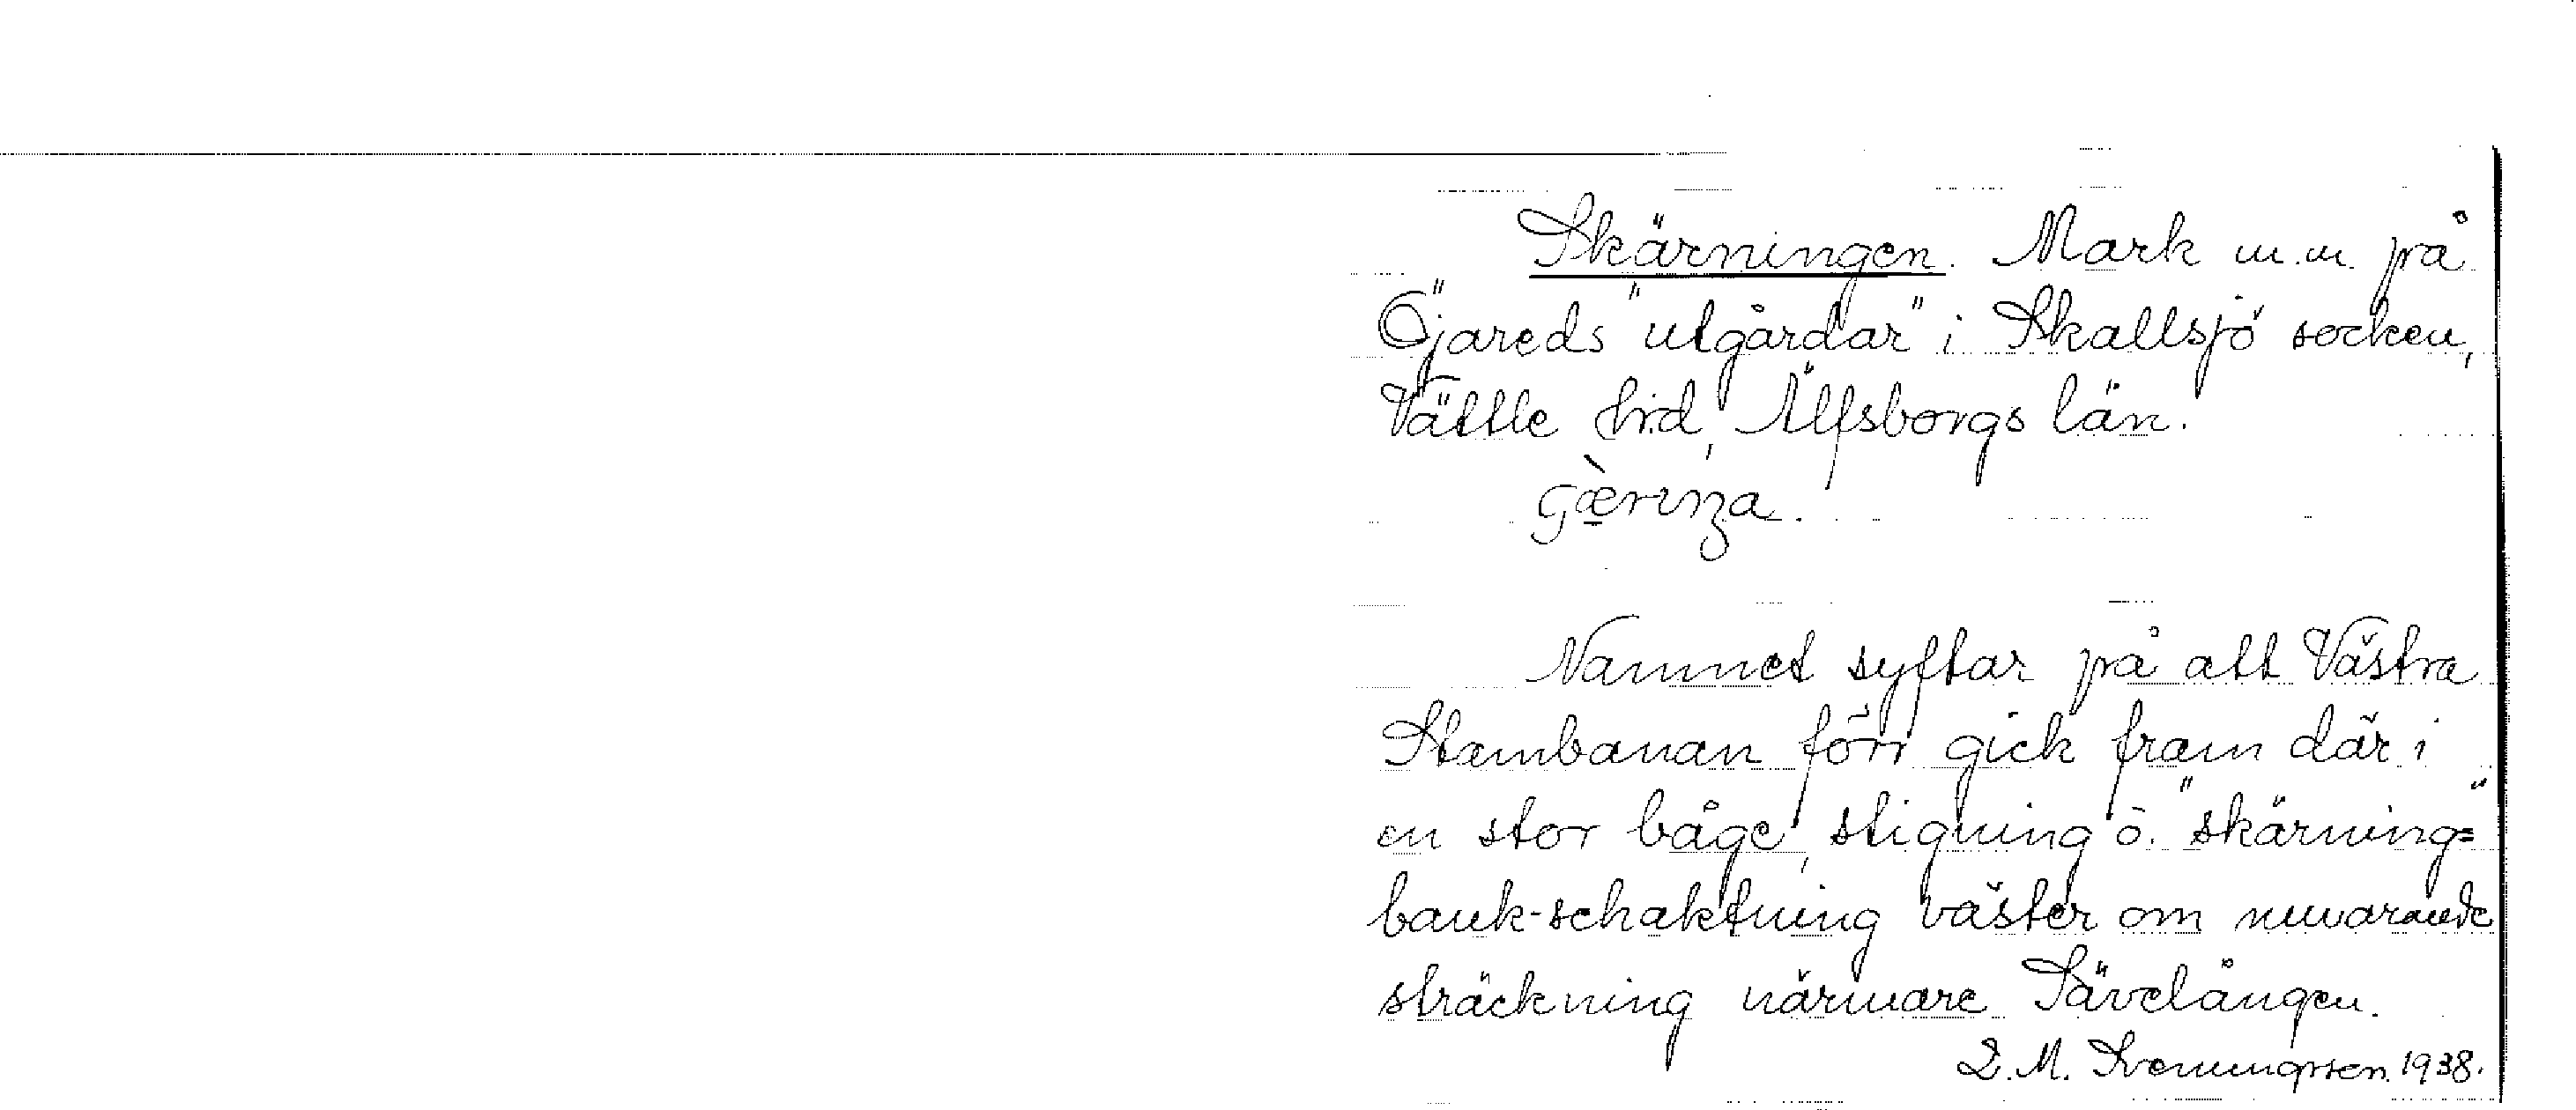 Skärningen. Mark m.m. på
Öjareds "utgårdar" i Skallsjö socken,
Vättle hd, Älfsborgs län.
Namnet syftar på att Västra
Stambanan förr gick fram där i
en stor båge, stigning o. "skärning"=
bank-schaktning väster om nuvarande
sträckning närmare Sävelången.
D. M. 1938.